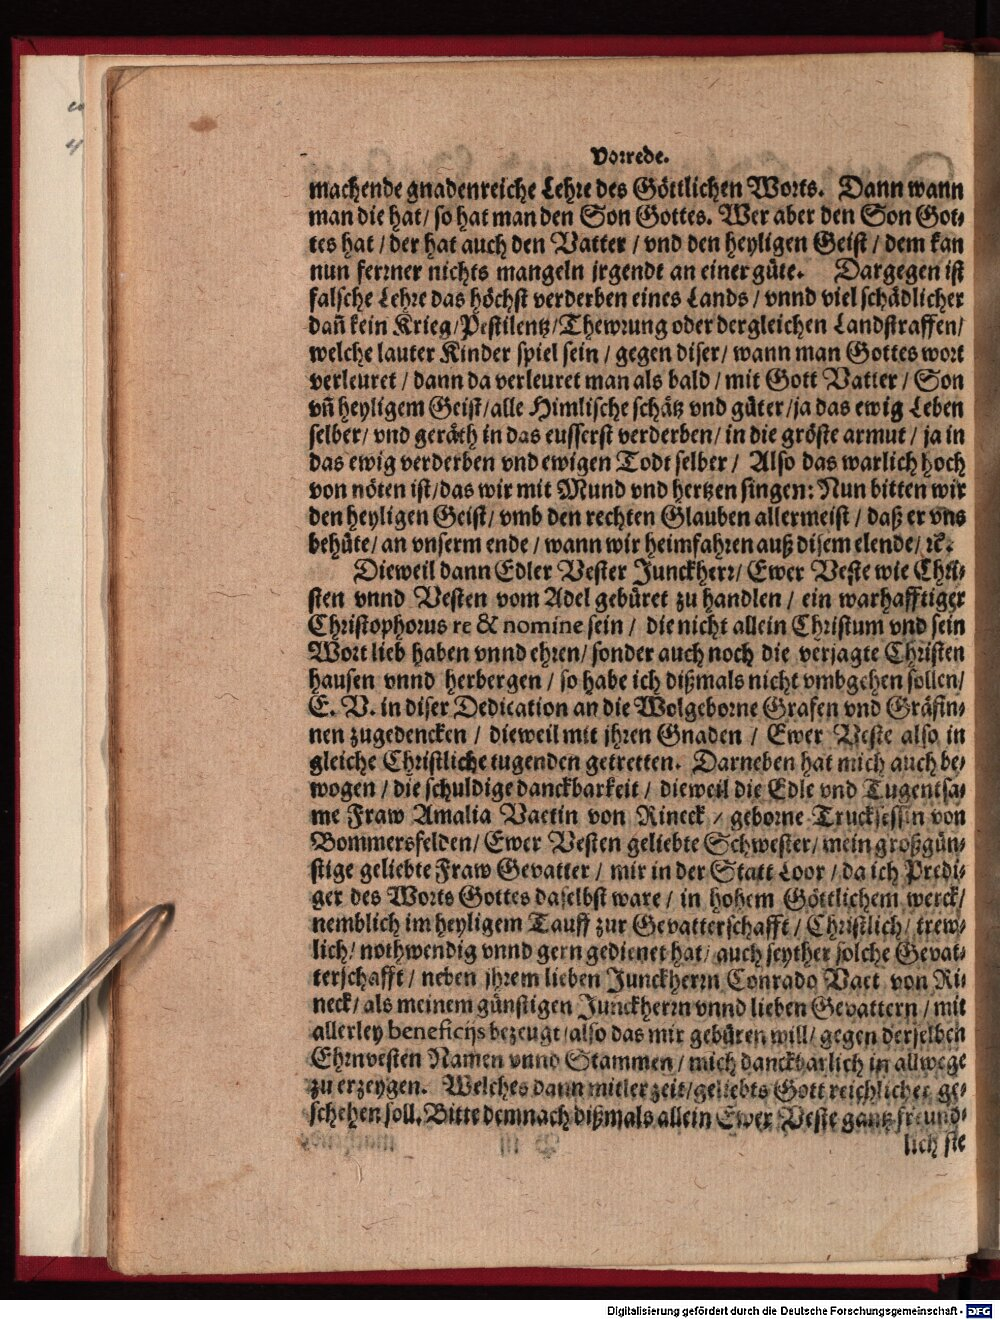 Vorrede.
machende gnadenreiche Lehre des Göttlichen Worts. Dann wann
man die hat / so hat man den Son Gottes. Wer aber den Son Got⸗
tes hat / der hat auch den Vatter / vnd den heyligen Geist / dem kan
nun ferrner nichts mangeln irgendt an einer güte. Dargegen ist
falsche Lehre das höchst verderben eines Lands / vnnd viel schädlicher
dañ kein Krieg / Pestilentz / Thewrung oder dergleichen Landstraffen /
welche lauter Kinder spiel sein / gegen diser / wann man Gottes wort
verleuret / dann da verleuret man als bald / mit Gott Vatter / Son
vñ heyligem Geist / alle Himlische schätz vnd güter / ja das ewig Leben
selber / vnd geräth in das eusserst verderben / in die gröste armut / ja in
das ewig verderben vnd ewigen Todt selber / Also das warlich hoch
von nöten ist / das wir mit Mund vnd hertzen singen: Nun bitten wir
den heyligen Geist / vmb den rechten Glauben allermeist / daß er vns
behüte / an vnserm ende / wann wir heimfahren auß disem elende / ꝛc.
Dieweil dann Edler Vester Junckherr / Ewer Veste wie Chri⸗
sten vnnd Vesten vom Adel gebüret zu handlen / ein warhafftiger
Christophorus re & nomine sein / die nicht allein Christum vnd sein
Wort lieb haben vnnd ehren / sonder auch noch die verjagte Christen
hausen vnnd herbergen / so habe ich dißmals nicht vmbgehen sollen /
E. V. in diser Dedication an die Wolgeborne Grafen vnd Gräfin⸗
nen zugedencken / dieweil mit jhren Gnaden / Ewer Veste also in
gleiche Christliche tugenden getretten. Darneben hat mich auch be⸗
wogen / die schuldige danckbarkeit / dieweil die Edle vnd Tugentsa⸗
me Fraw Amalia Vaetin von Rineck / geborne Trucksessin von
Bommersfelden / Ewer Vesten geliebte Schwester / mein großgün⸗
stige geliebte Fraw Gevatter / mir in der Statt Loor / da ich Predi⸗
ger des Worts Gottes daselbst ware / in hohem Göttlichem werck /
nemblich im heyligem Tauff zur Gevatterschafft / Christlich / trew⸗
lich / nothwendig vnnd gern gedienet hat / auch seyther solche Gevat⸗
terschafft / neben jhrem lieben Junckherrn Conrado Vaet von Ri⸗
neck / als meinem günstigen Junckherrn vnnd lieben Gevattern / mit
allerley beneficijs bezeugt / also das mir gebüren will / gegen derselben
Ehrnvesten Namen vnnd Stammen / mich danckbarlich in allwege
zu erzeygen. Welches dann mitler zeit / geliebts Gott reichlicher ge⸗
schehen soll. Bitte demnach dißmals allein Ewer Veste gantz freund⸗
lich sie
Digitalisierung gefördert durch die Deutsche Forschungsgemeinschaft - DFG